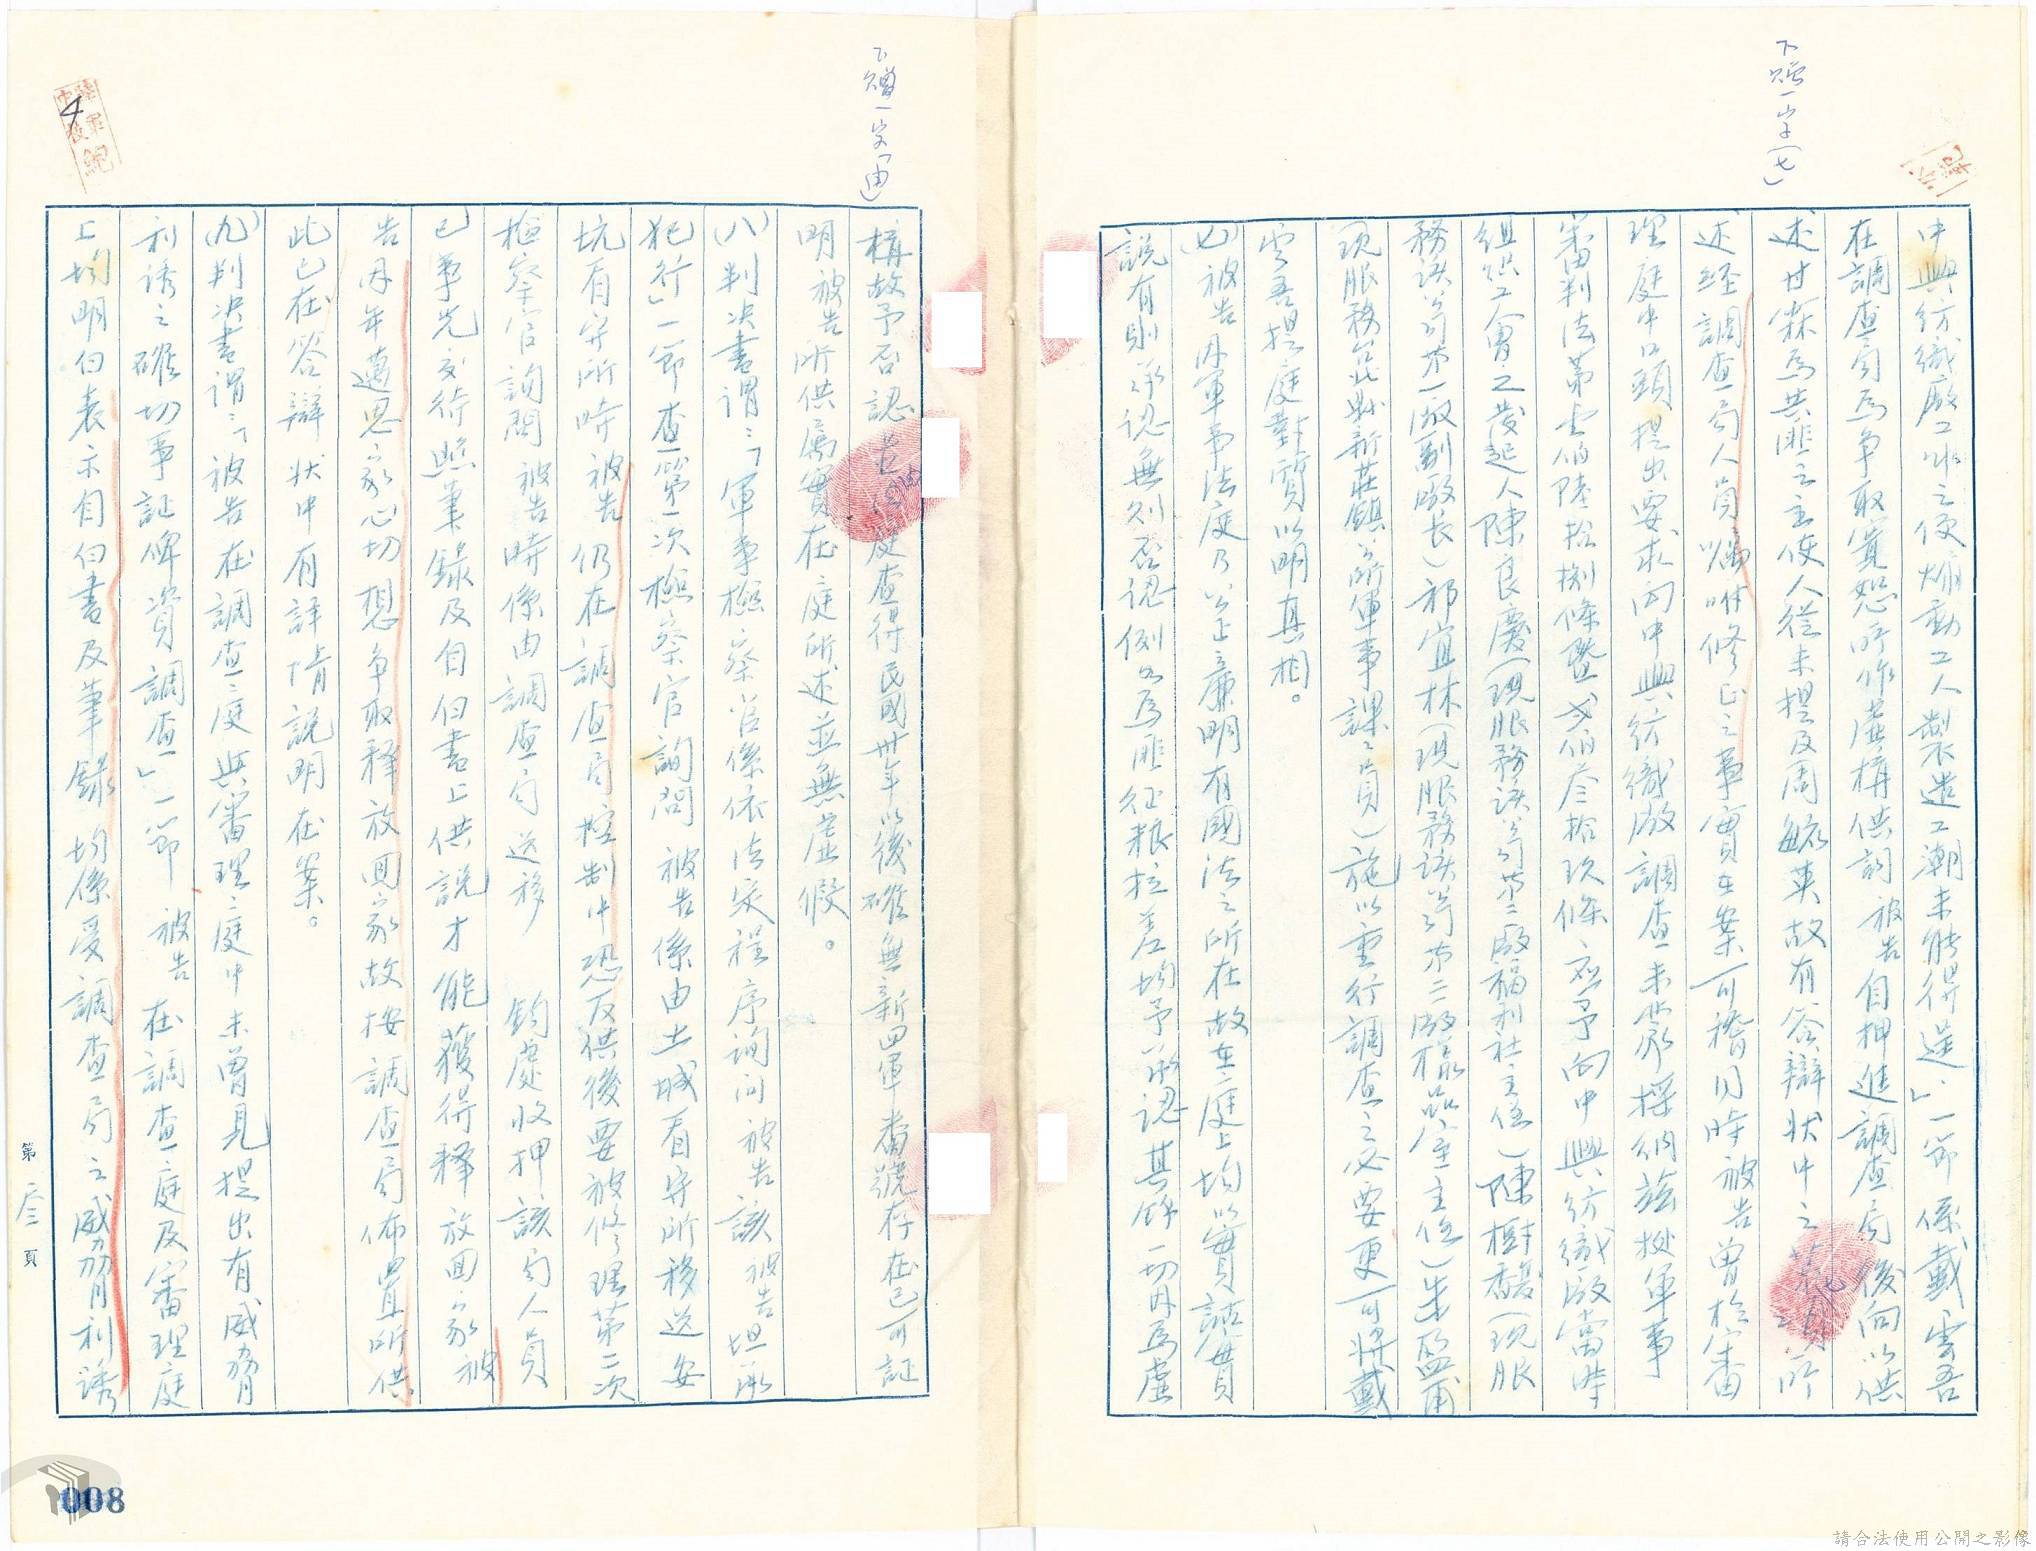 下增一字(七)
中興紡織廠工作之便煽動工人製造工潮未能得逞」一節係戴雲吾
在調查局為爭取寬恕所作虛構供詞被告自押進調查局後向以供
述甘霖為共匪之主使人從未提及周毓英故有答辯狀中之 所
述經調查局人員 修正之事實在案可稽同時被告曾於審
理庭中口頭提出要求向中興紡織廠調查未蒙採納茲按軍事
審判法第壹佰陸拾捌條暨弍佰叁拾玖條應予向中興紡織廠當時
組織工會之發起人陳良慶(現服務該公司第二廠福利社主任)陳樹馥(現服
務該公司第一廠副廠長)祁宜林(現服務該公司第二廠 主任)朱 甫
(現服務台北縣新莊鎮公所軍事課課員)施以重行調查之必要更可將戴
雲吾提庭對質以明真相。
(七)被告因軍事法庭乃公正廉明有國法之所在故在庭上均以實質 實
說有則承認無則否認例如為匪征粮拉差均予承認其餘一切因為虛
下增一字「由」
構故予否認 庭查得民國卅年以後確無新四軍番號存在已可証
明被告所供屬實在庭所述並無虛假。
(八)判決書謂:「軍事檢察官係依法定程序詢问被告該被告坦承
犯行」一節查第一次檢察官詢問被告係由土城看守所移送安
坑看守所時被告仍在調查局控制中恐反供後要被修理第二次
檢察官詢問被告時係由調查局送移 鈞處收押該局人員
已事先交待照筆錄及自白書上供說才能獲得釋放回家被
告因年邁思家心切想爭取釋放回家故按調查局佈置所供
此已在答辯狀中有詳情說明在案。
(九)判決書謂:「被告在調查庭與審理庭中未曾見提出有威脅
利誘之確切事証俾資調查」一節被告在調查庭及審理庭
上均明白表示自白書及筆錄均係受調查局之威脅利誘
第叁頁
4
008
請合法使用公開之影像